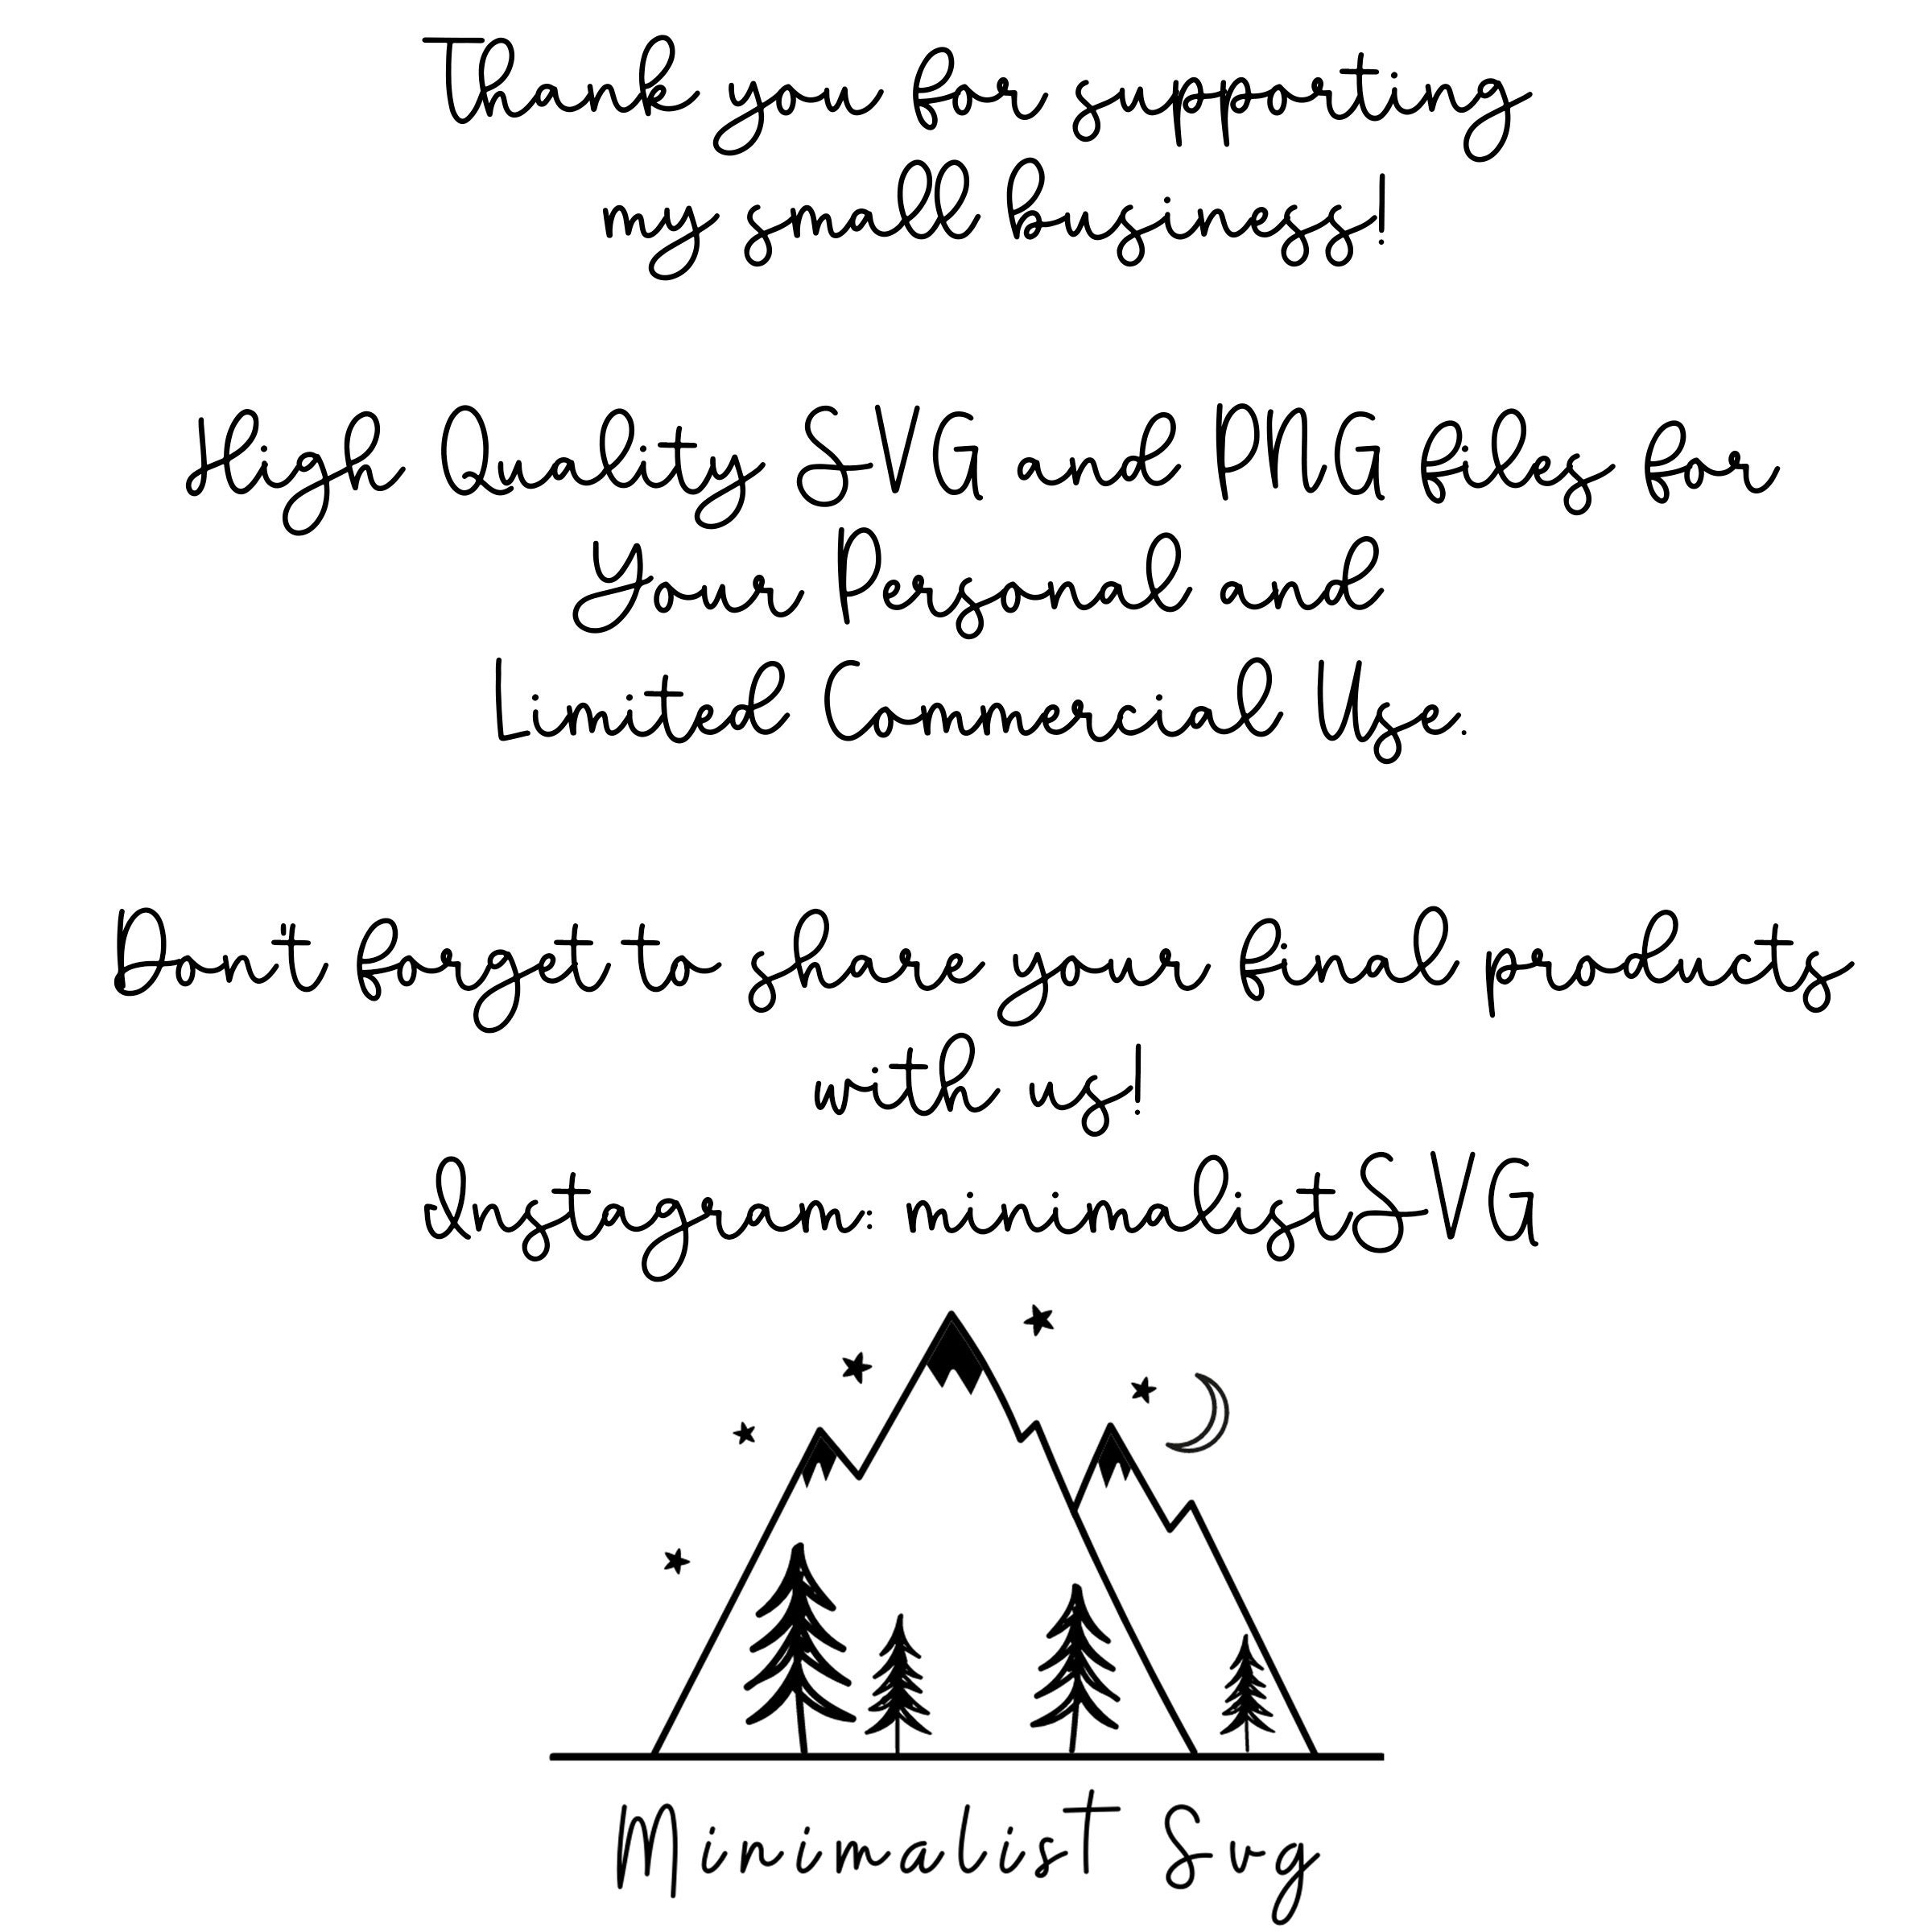 Thank you for supporting
my small business!
High Quality SVG and PNG files for
Your Personal and
Limited Commercial Use.
Don't forget to share your final products
with us!
Instagram: minimalistSVG
Minimalist Svg